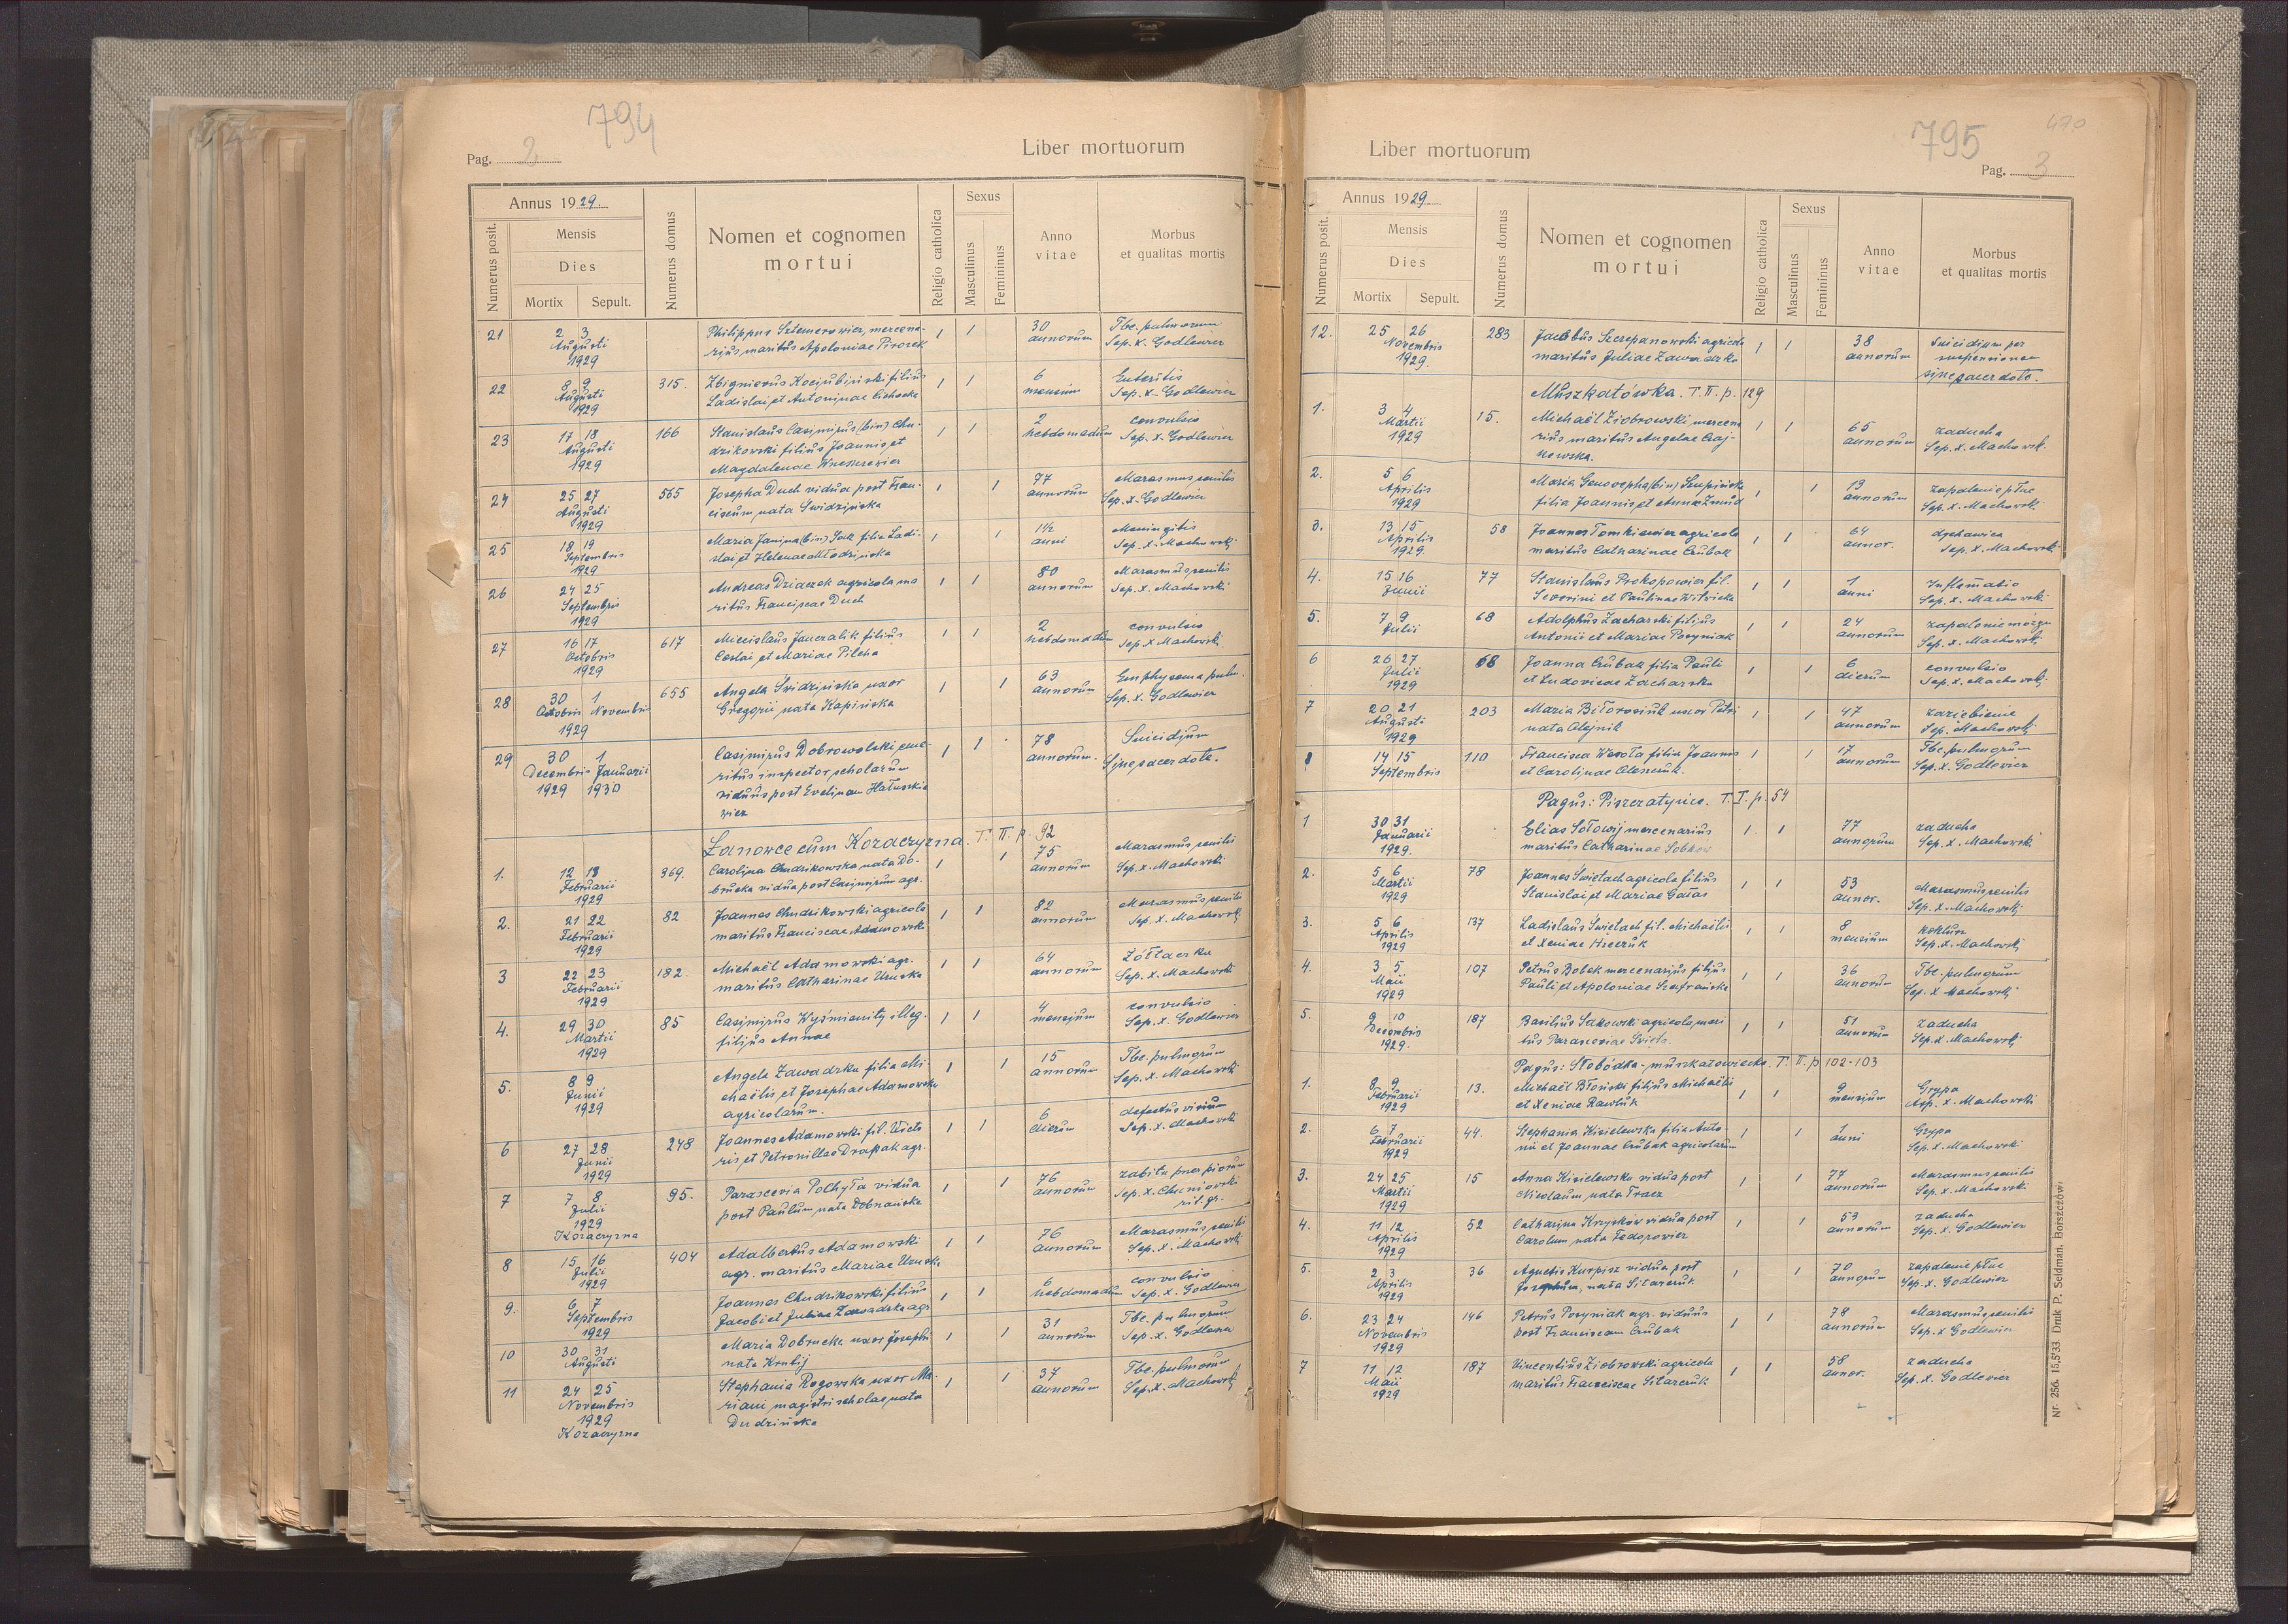 794
Pag. 2
Liber mortuorum
Annus 1929.
Numerus posit.
Mensis
Dies
Mortix
Sepult.
Numerus domus
Nomen et cognomen
mortui
Religio catholica
Sexus
Masculinus
Femininus
Anno
vitae
Morbus
et qualitas mortis
21 2 3 Philippus mercena- 1 1 30 Tbc. pulmorum
Augusti rius maritus Apoloniae annorum Sep. x. Godlewicz
1929
22 8 9 315. Zbignievus filius 1 1 6 Enteritis
Augusti Ladislai et Antoninae Cichocka mensium Sep. x. Godlewicz
1929
23 17 18 166 Stanislaus Casimirus (bin) Chu- 1 1 2 convulsio
Augusti drikowski filius Joannis et hebdomadum Sep. x. Godlewicz
1929 Magdalenae
24 25 27 565 Josepha Duch vidua post Fran- 1 1 77 Marasmus senilis
Augusti ciscum, nata Świdzińska annorum Sep. x. Godlewicz
1929
25 18 19 Maria Janina (bin) filia Ladi- 1 1 1½ Meningitis
Septembris slai et Helenae Młodzińska anni Sep. x. Machowski
1929
26 24 25 Andreas Dziaczek agricola ma 1 1 80 Marasmus senilis
Septembris ritus Franciscae Duch annorum Sep. x. Machowski
1929
27 16 17 617 Miecislaus Janczalik filius 1 1 2 convulsio
Octobris Ceslai et Mariae Pilcha hebdomadum Sep. x Machowski
1929
28 30 1 655 Angela Świdzińska uxor 1 1 63 Emphysema pulm.
Octobris Novembris Gregorii nata Kapińska annorum Sep. x. Godlewicz
1929
29 30 1 Casimirus Dobrowolski eme- 1 1 78 Suicidium
Decembris Januarii ritus inspector scholarum annorum. Sine sacerdote.
1929 1930 viduus post Evelinam
wicz
Łanowce cum Kozaczyzna. T. II. p. 92
1. 12 13 369. Carolina Chudzikowska nata Do- 1 1 75 Marasmus senilis
Februarii brucka vidua post Casimirum agr. annorum Sep. x. Machowski
1929
2. 21 22 82 Joannes Chudzikowski agricola 1 1 82 Marasmus senilis
Februarii maritus Franciscae Adamowska annorum Sep. x. Machowski
1929
3 22 23 182. Michaël Adamowski agr. 1 1 64 Żółtaczka
Februarii maritus Catharinae annorum Sep. x. Machowski
1929
4. 29 30 85 Casimirus Wyśmienity illeg. 1 1 4 convulsio
Martii filius Annae mensium Sep. x. Godlewicz
1929
5. 8 9 Angela Zawadzka filia Mi- 1 1 15 Tbc. pulmorum
Junii chaëlis et Josephae Adamowska annorum Sep. x. Machowski
1929 agricolarum.
6 27 28 248 Joannes Adamowski fil. Victo 1 1 6 defectus virium
Junii ris et Petronillae Drapak agr. dierum Sep. x. Machowski
1929
7 7 8 95. Parascevia Pochyła vidua 1 1 76 zabita przez piorun
Julii post Paulum nata Dobrzańska annorum Sep. x. Chuniowski
1929 rit. gr.
Kozaczyzna
8 15 16 404 Adalbertus Adamowski 1 1 76 Marasmus senilis
Julii agr. maritus Mariae annorum Sep. x. Machowski
1929
9. 6 7 Joannes Chudzikowski filius 1 1 6 convulsio
Septembris Jacobi et Juliae Zawadzka agr. hebdomadum Sep. x. Godlewicz
1929
10 30 31 Maria Dobrucka uxor Josephi 1 1 31 Tbc. pulmorum
Augusti nata annorum Sep. x. Godlewicz
11 24 25 Stephania Rogowska uxor Ma- 1 1 37 Tbc. pulmorum
Novembris riani magistri scholae nata annorum Sep. x. Machowski
1929 Dudzińska
Kozaczyzna
795
470
Liber mortuorum
Pag. 3
Annus 1929
Numerus posit.
Mensis
Dies
Mortix
Sepult.
Numerus domus
Nomen et cognomen
mortui
Religio catholica
Sexus
Masculinus
Femininus
Anno
vitae
Morbus
et qualitas mortis
12. 25 26 283 Jacobus Szczepanowski agricola 1 1 38 Suicidium per
Novembris maritus Juliae Zawadzka annorum suspensionem
1929. sine sacerdote.
Muszkatówka. T. II. p. 129
1. 3 4 15. Michaël Ziobrowski mercena 1 1 65 zaducha
Martii rius maritus Angelae Czaj- annorum Sep. x. Machowski
1929 kowska.
2. 5 6 Maria Genovepha (bin) 1 1 13 zapalenie płuc
Aprilis filia Joannis et Anna Żmud annorum Sep. x. Machowski
1929
3. 13 15 58 Joannes Tomkiewicz agricola 1 1 64 dychawica
Aprilis maritus Catharinae Czubak annor. Sep. x. Machowski
1929.
4. 15 16 77 Stanislaus Prokopowicz fil. 1 1 1 Inflamatio
Junii Severini et Paulinae Witwicka anni Sep. x. Machowski
5. 7 9 68 Adolphus Zacharski filius 1 1 24 zapalenie mózgu
Julii Antonii et Mariae Pozyniak annorum Sep. x. Machowski
6 26 27 68 Joanna Czubak filia Pauli 1 1 6 convulsio
Julii et Ludovicae Zacharska dierum Sep. x. Machowski
1929
7 20 21 203 Maria uxor Petri 1 1 47 zaziębienie
Augusti nata Olejnik annorum Sep. Machowski
1929
8 14 15 110 Francisca filia Joannis 1 1 17 Tbc. pulmorum
Septembris et Carolinae annorum Sep. x. Godlewicz
Pagus: Piszczatyńce. T. I. p. 54
1 30 31 Elias Sołowij mercenarius 1 1 77 zaducha
Januarii maritus Catharinae Sobków annorum Sep. x. Machowski
1929.
2. 5 6 78 Joannes Świetach agricola filius 1 1 53 Marasmus senilis
Martii Stanislai et Mariae annor. Sep. x. Machowski
1929
3. 5 6 137 Ladislaus Świetach fil. Michaëlis 1 1 8 koklusz
Aprilis et Xeniae mensium Sep. x. Machowski
1929
4. 3 5 107 Petrus Bobek mercenarius filius 1 1 36 Tbc. pulmorum
Maii Pauli et Apoloniae Szafrańska annorum Sep. x Machowski
1929
5. 9 10 187 Basilius agricola mari 1 1 51 zaducha
Decembris tus Parasceviae annorum Sep. x. Machowski
1929.
Pagus: Słobódka-muszkatowiecka. T. II. p 102-103
1. 8 9 13. Michaël Błoński filius Michaëlis 1 1 9 Grypa
Februarii et Xeniae Rawluk mensium Sep. x. Machowski
1929
2. 6 7 44. Stephania Kisielewska filia Anto- 1 1 1 Grypa
Februarii nii et Joannae Czubak agricolarum anni Sep. x. Machowski
1929
3. 24 25 15 Anna Kisielewska vidua post 1 1 77 Marasmus senilis
Martii Nicolaum nata Tracz annorum Sep. x. Machowski
1929
4. 11 12 52 Catharina Krzyśków vidua post 1 1 53 zaducha
Aprilis Carolum nata Fedorowicz annorum Sep. x. Godlewicz
1929
5. 2 3 36 Agnetis Kurpisz vidua post 1 1 70 zapalenie płuc
Aprilis Josephum, nata Sitarczuk annorum Sep. x. Godlewicz
1929
6. 23 24 146 Petrus Pozyniak agr. viduus 1 1 78 Marasmus senilis
Novembris post Franciscam Czubak annorum Sep. x Godlewicz
1929
7 11 12 187 Vincentius Ziobrowski agricola 1 1 58 zaducha
Maii maritus Franciscae Sitarczuk annor. Sep. x. Godlewicz
1929
Nr. 256. 15,5'33. Druk P. Seldman, Borszczów.